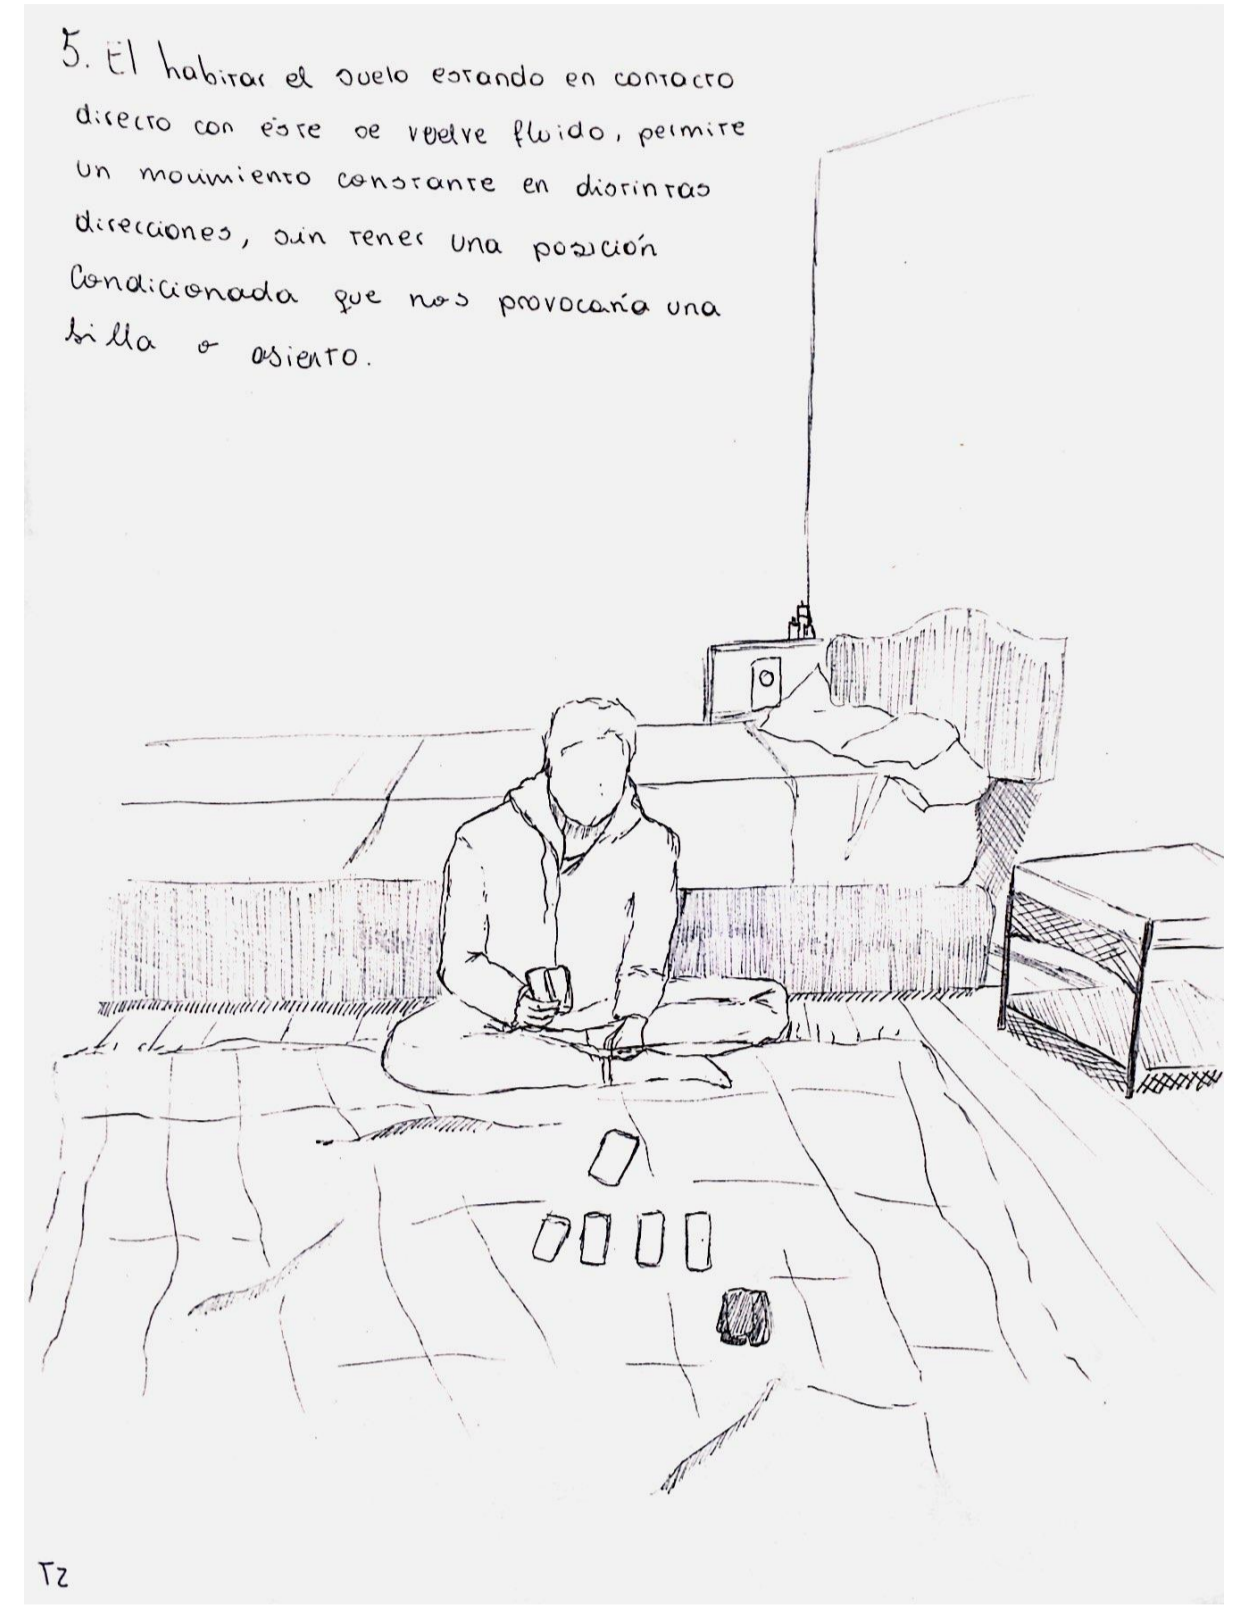 5. El habitar el suelo estando en contacto
directo con éste se vuelve fluido, permite
un movimiento constante en distintas
direcciones, sin tener una posición
Condicionada que nos provocaría una
silla o asiento.
T2